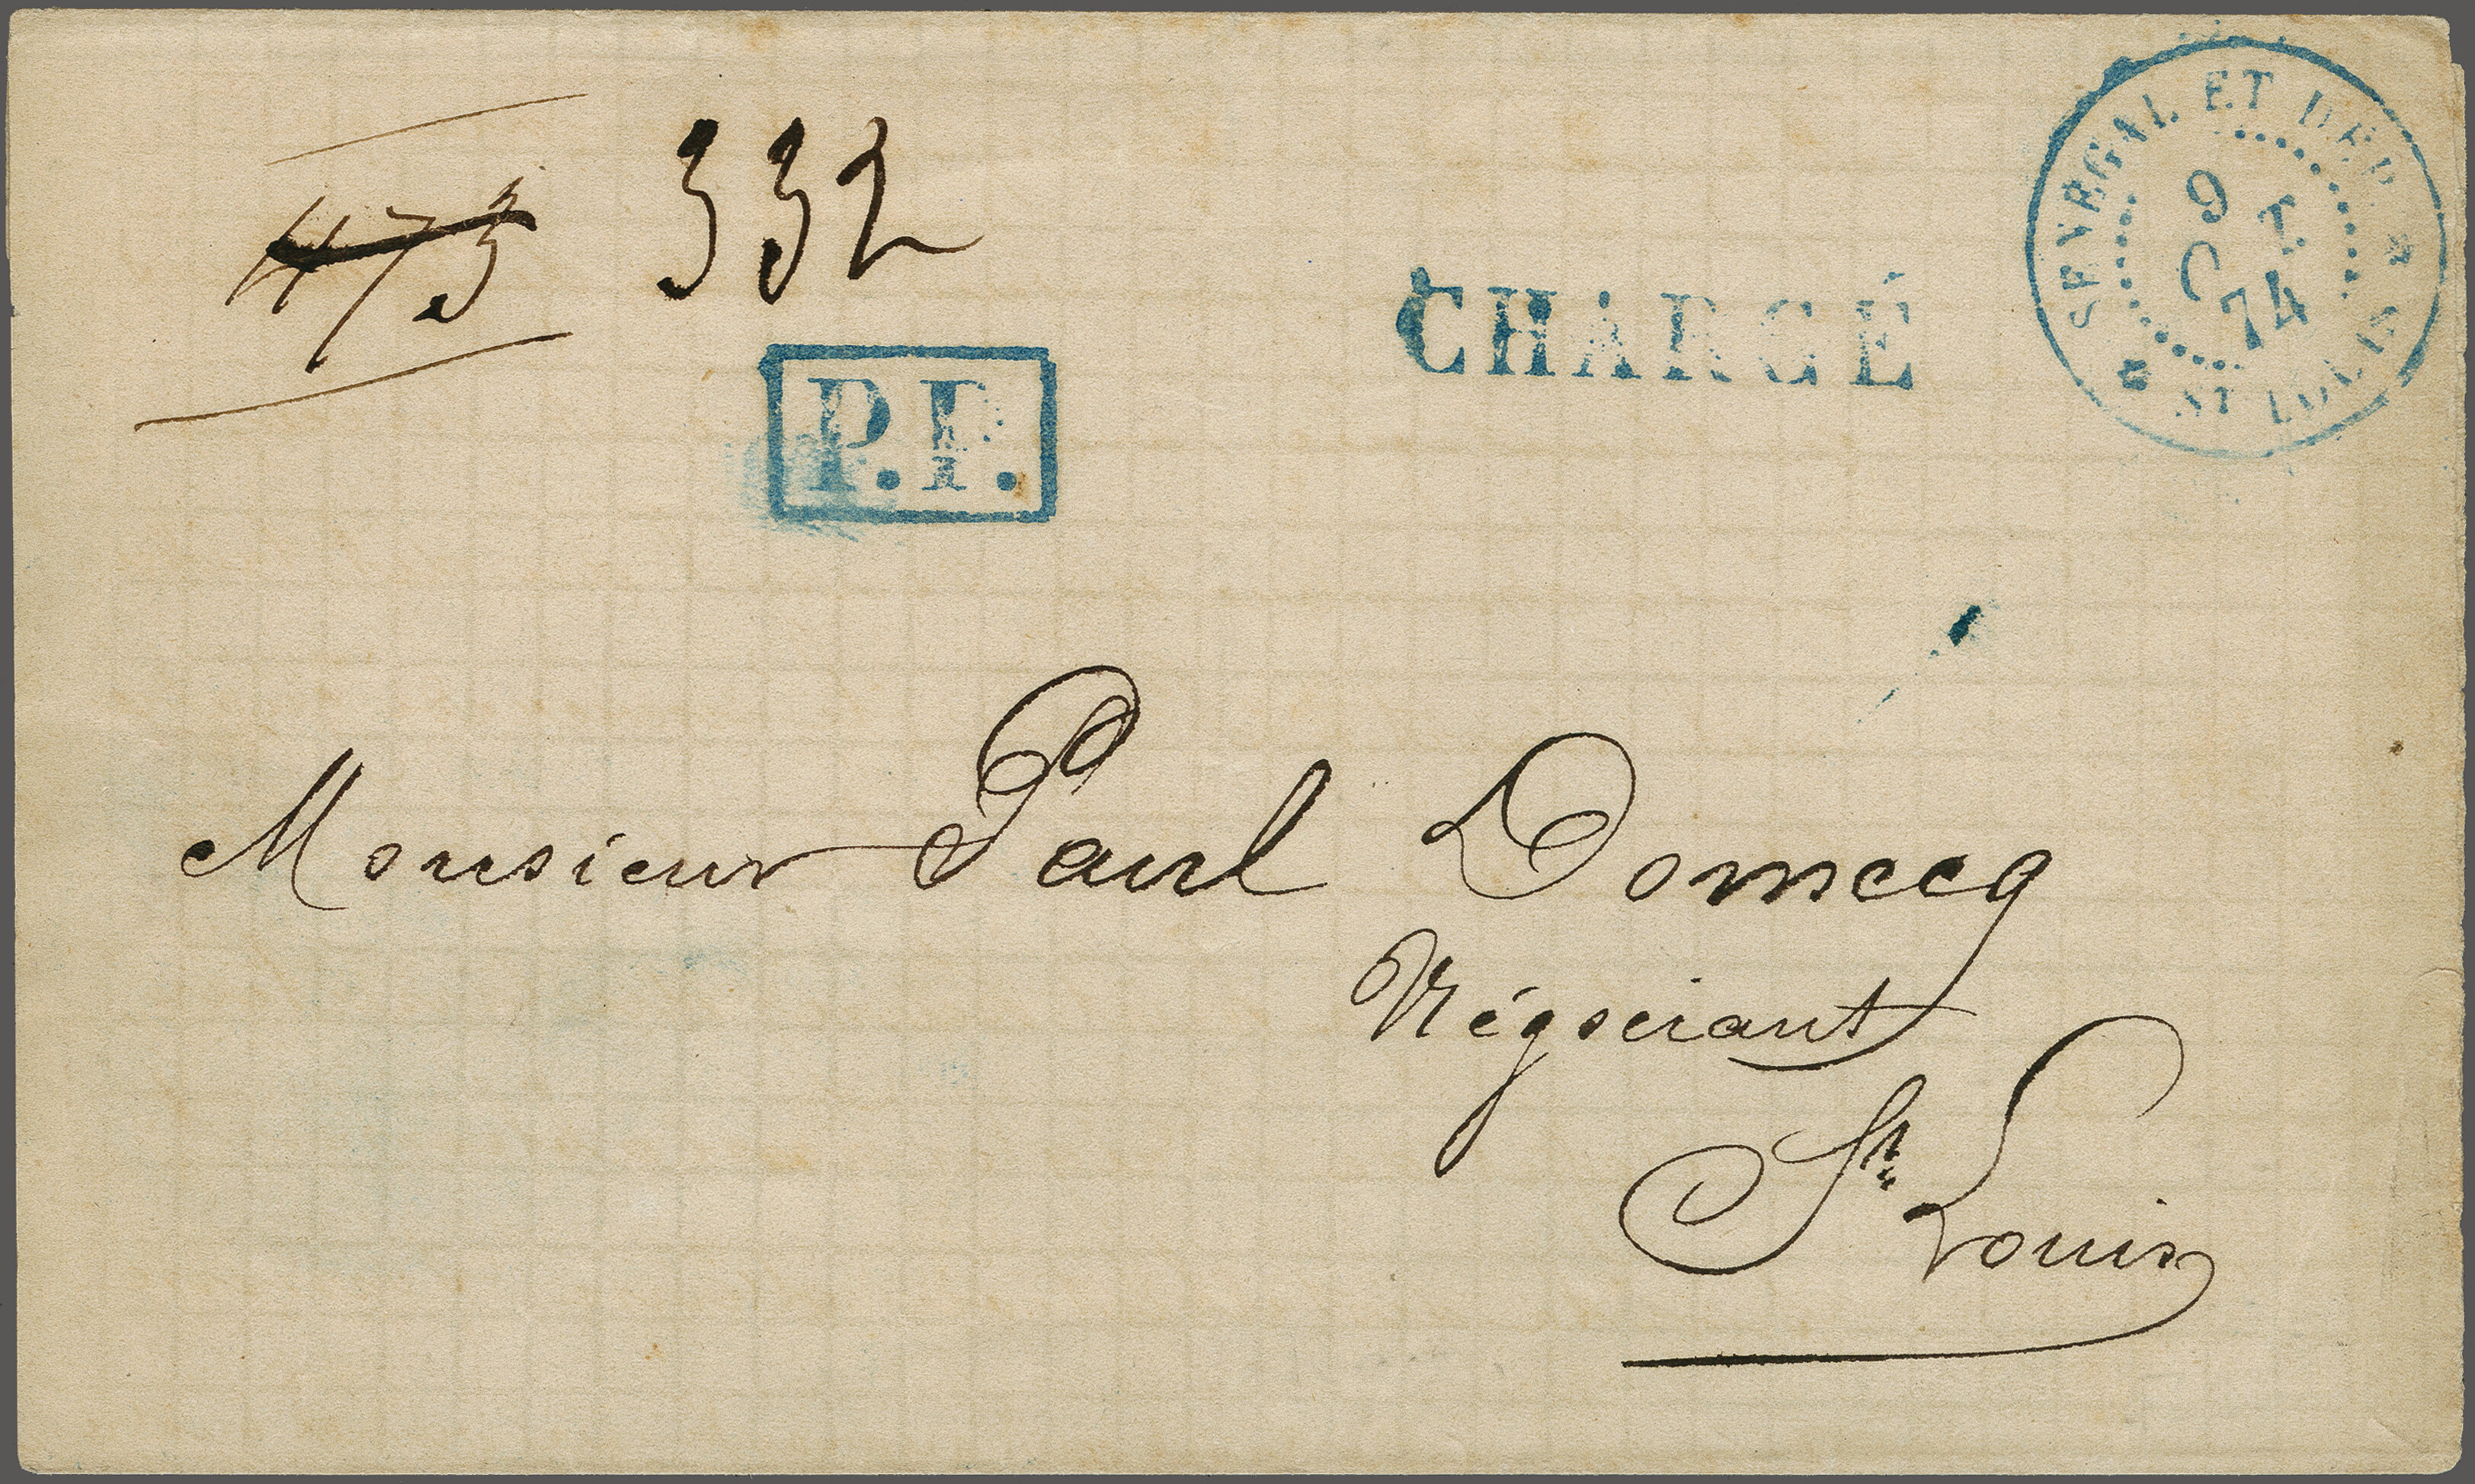 473 332
CHARGÉ
P.P.
SENEGAL ET DEP.
9
74
ST LOUIS
Monsieur Paul Domecq
Négociant
St Louis